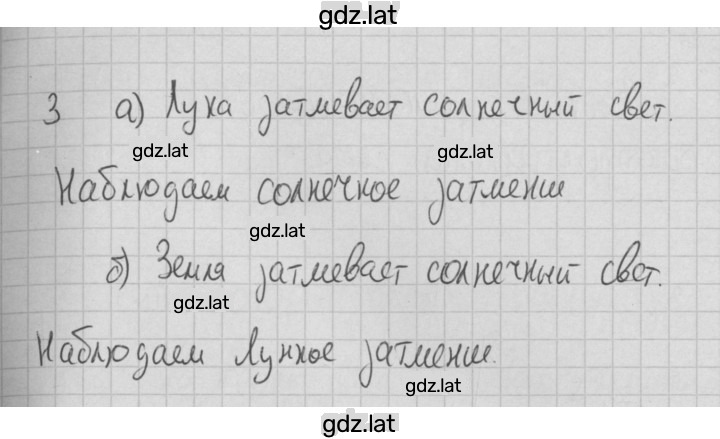 gdz.lat
3 а) Луна затмевает солнечный свет.
gdz.lat gdz.lat
Наблюдаем солнечное затмение
gdz.lat
б) Земля затмевает солнечный свет.
gdz.lat
Наблюдаем Лунное затмение.
gdz.lat
gdz.lat